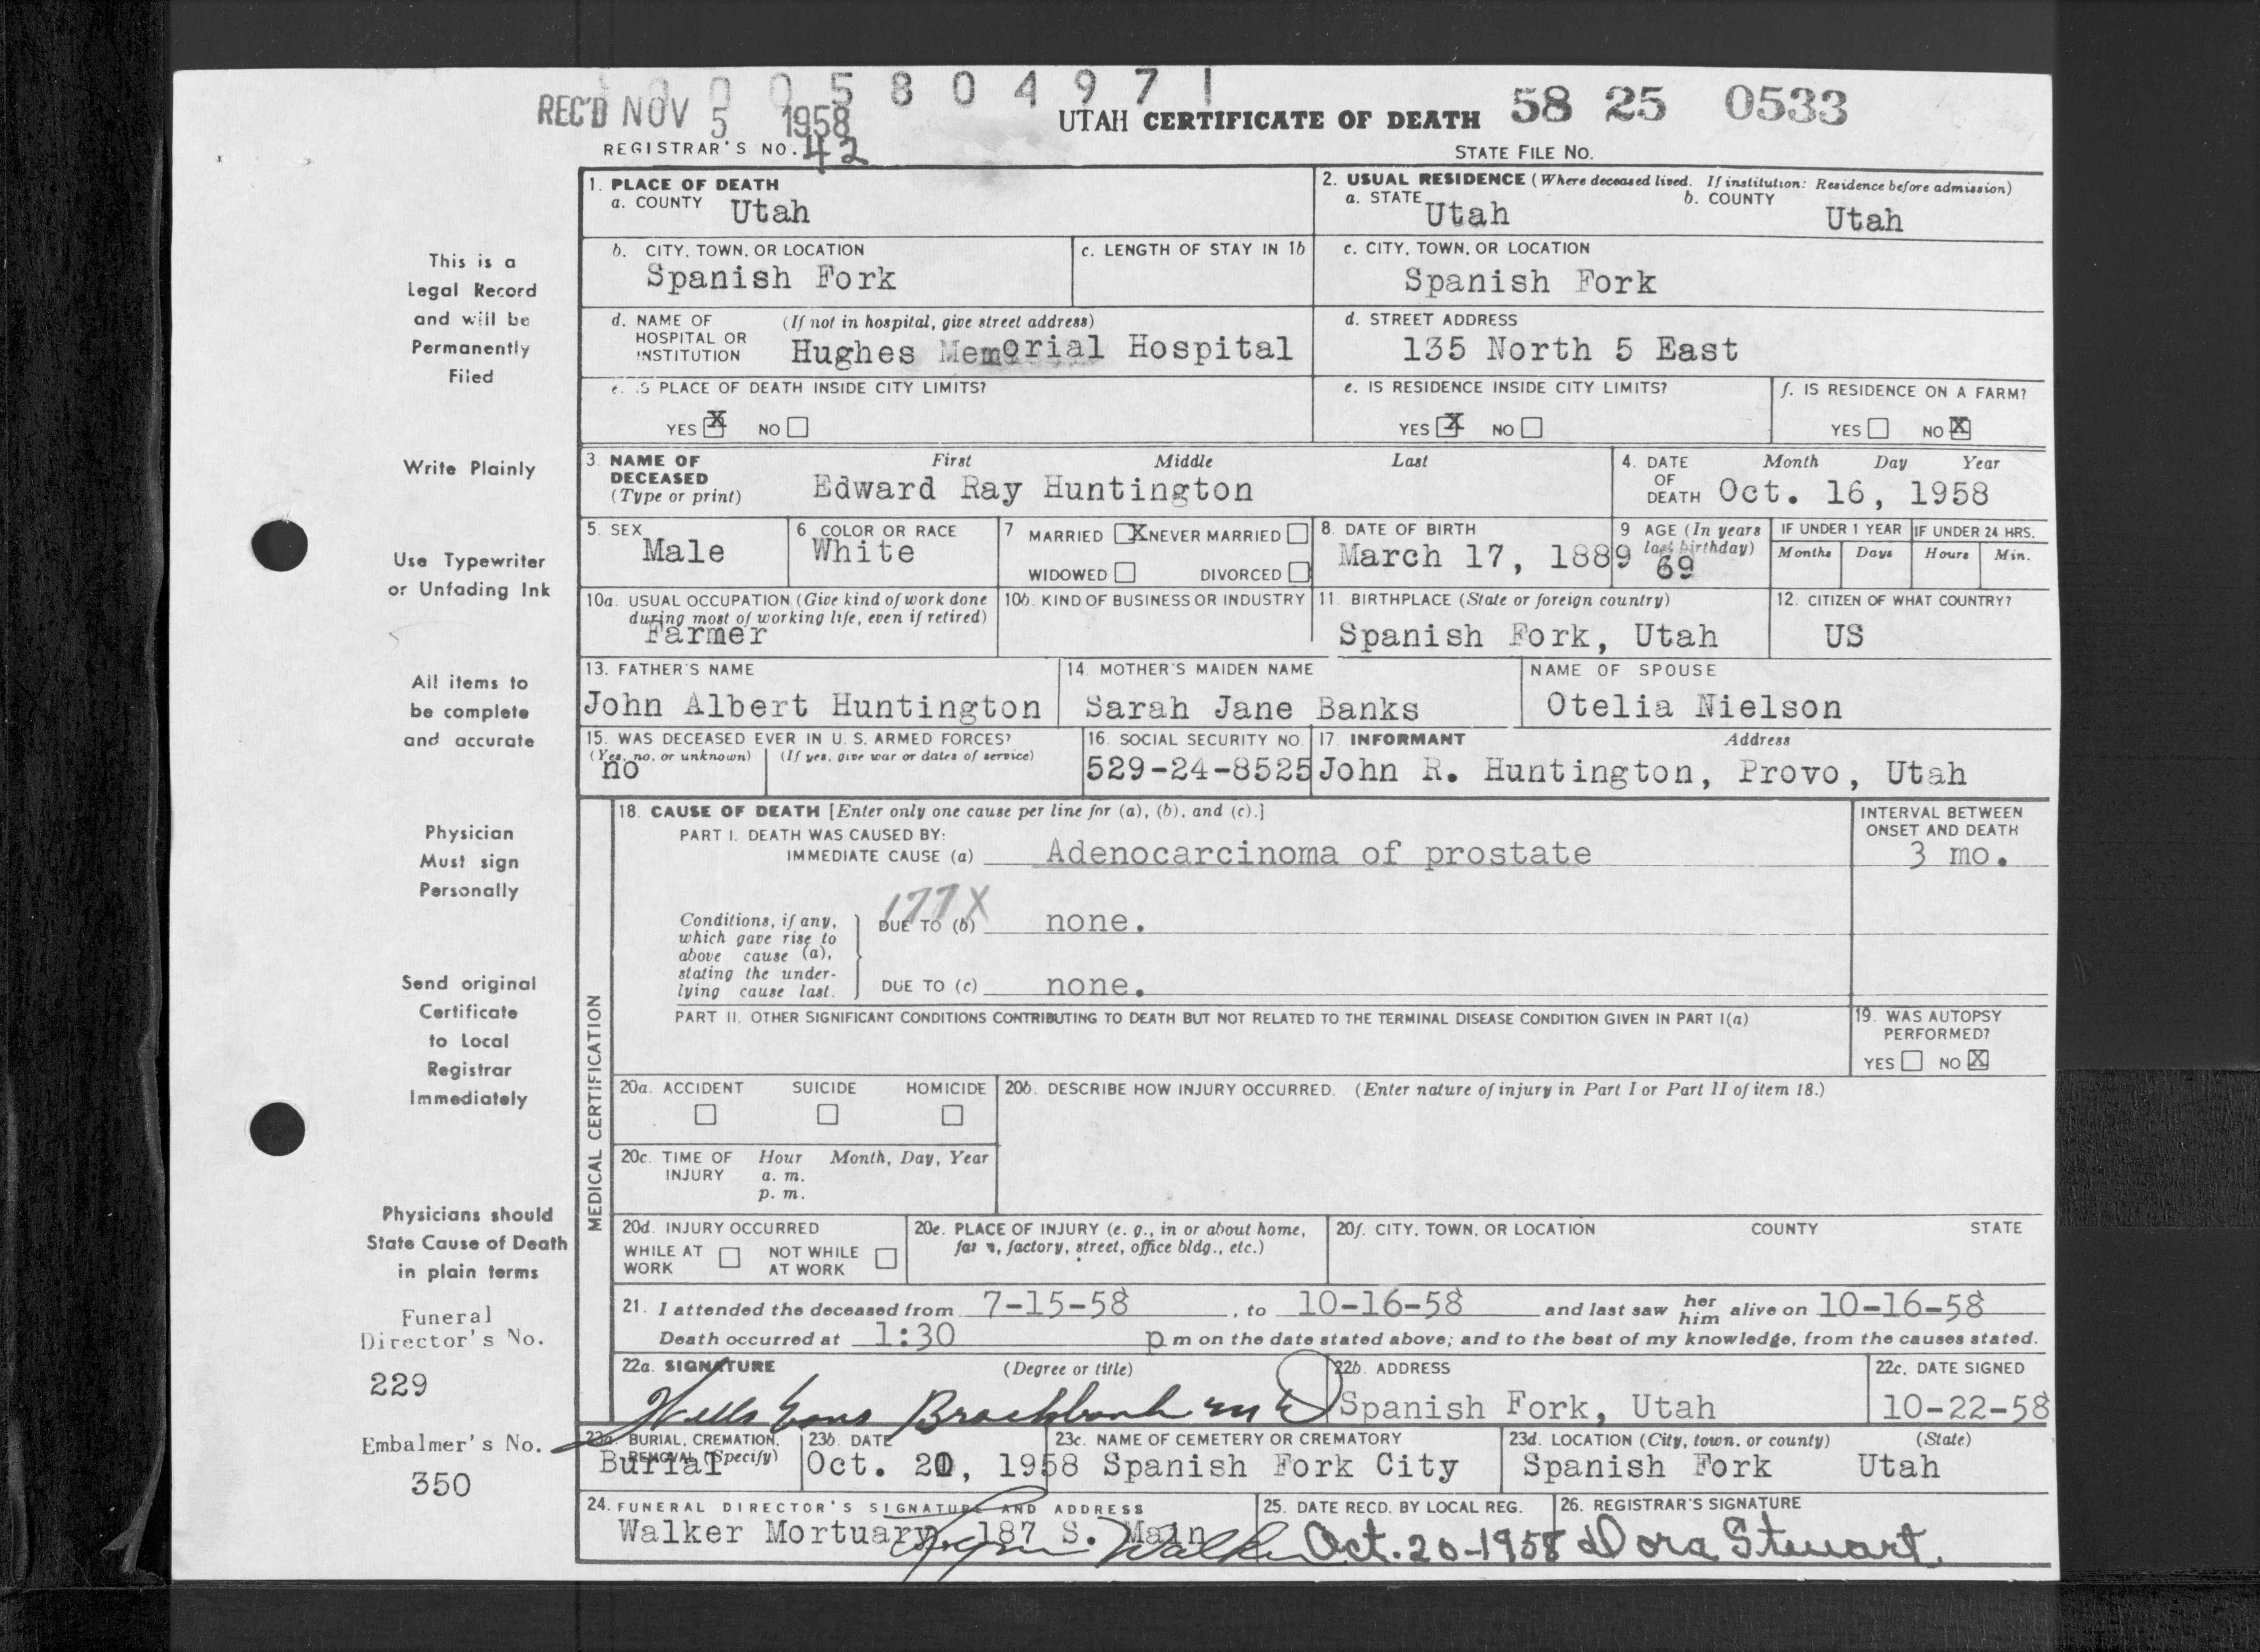 0 0 5 8 0 4 9 7 1
REC'D NOV 5 1958
UTAH CERTIFICATE OF DEATH 58 25 0533
REGISTRAR'S NO. 42
STATE FILE NO.
1. PLACE OF DEATH
a. COUNTY Utah
2. USUAL RESIDENCE (Where deceased lived. If institution: Residence before admission)
a. STATE Utah b. COUNTY Utah
b. CITY, TOWN, OR LOCATION Spanish Fork
c. LENGTH OF STAY IN 1b
c. CITY, TOWN, OR LOCATION Spanish Fork
d. NAME OF HOSPITAL OR INSTITUTION (If not in hospital, give street address)
Hughes Memorial Hospital
d. STREET ADDRESS
135 North 5 East
e. IS PLACE OF DEATH INSIDE CITY LIMITS?
YES X NO
e. IS RESIDENCE INSIDE CITY LIMITS?
YES X NO
f. IS RESIDENCE ON A FARM?
YES NO X
3. NAME OF DECEASED (Type or print) First Middle Last
Edward Ray Huntington
4. DATE OF DEATH Month Day Year
Oct. 16, 1958
5. SEX Male
6 COLOR OR RACE White
7 MARRIED X NEVER MARRIED
WIDOWED DIVORCED
8. DATE OF BIRTH
March 17, 1889
9 AGE (In years last birthday) 69
IF UNDER 1 YEAR Months Days
IF UNDER 24 HRS. Hours Min.
10a. USUAL OCCUPATION (Give kind of work done during most of working life, even if retired)
Farmer
10b. KIND OF BUSINESS OR INDUSTRY
11. BIRTHPLACE (State or foreign country)
Spanish Fork, Utah
12. CITIZEN OF WHAT COUNTRY?
US
13. FATHER'S NAME
John Albert Huntington
14. MOTHER'S MAIDEN NAME
Sarah Jane Banks
NAME OF SPOUSE
Otelia Nielson
15. WAS DECEASED EVER IN U. S. ARMED FORCES?
(Yes, no, or unknown) (If yes, give war or dates of service)
no
16. SOCIAL SECURITY NO.
529-24-8525
17. INFORMANT Address
John R. Huntington, Provo, Utah
MEDICAL CERTIFICATION
18. CAUSE OF DEATH [Enter only one cause per line for (a), (b), and (c).]
INTERVAL BETWEEN ONSET AND DEATH
PART I. DEATH WAS CAUSED BY:
IMMEDIATE CAUSE (a) Adenocarcinoma of prostate 3 mo.
177X
Conditions, if any, which gave rise to above cause (a), stating the underlying cause last.
DUE TO (b) none.
DUE TO (c) none.
PART II. OTHER SIGNIFICANT CONDITIONS CONTRIBUTING TO DEATH BUT NOT RELATED TO THE TERMINAL DISEASE CONDITION GIVEN IN PART I(a)
19. WAS AUTOPSY PERFORMED?
YES NO X
20a. ACCIDENT SUICIDE HOMICIDE
20b. DESCRIBE HOW INJURY OCCURRED. (Enter nature of injury in Part I or Part II of item 18.)
20c. TIME OF INJURY Hour Month, Day, Year
a. m.
p. m.
20d. INJURY OCCURRED
WHILE AT WORK NOT WHILE AT WORK
20e. PLACE OF INJURY (e. g., in or about home, farm, factory, street, office bldg., etc.)
20f. CITY, TOWN, OR LOCATION COUNTY STATE
21. I attended the deceased from 7-15-58, to 10-16-58 and last saw her him alive on 10-16-58
Death occurred at 1:30 p m on the date stated above; and to the best of my knowledge, from the causes stated.
22a. SIGNATURE (Degree or title)
Brockbank M D
22b. ADDRESS
Spanish Fork, Utah
22c. DATE SIGNED
10-22-58
23a. BURIAL, CREMATION, REMOVAL (Specify)
Burial
23b. DATE
Oct. 20, 1958
23c. NAME OF CEMETERY OR CREMATORY
Spanish Fork City
23d. LOCATION (City, town, or county) (State)
Spanish Fork Utah
24. FUNERAL DIRECTOR'S SIGNATURE AND ADDRESS
Walker Mortuary 187 S. Main
Walker
25. DATE RECD. BY LOCAL REG.
Oct. 20-1958
26. REGISTRAR'S SIGNATURE
Dora Stewart
This is a
Legal Record
and will be
Permanently
Filed
Write Plainly
Use Typewriter
or Unfading Ink
All items to
be complete
and accurate
Physician
Must sign
Personally
Send original
Certificate
to Local
Registrar
Immediately
Physicians should
State Cause of Death
in plain terms
Funeral
Director's No.
229
Embalmer's No.
350